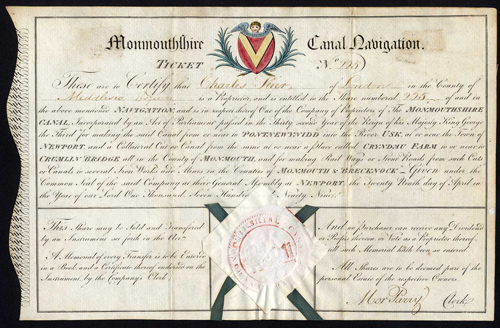 Monmouthshire Canal Navigation.
TICKET No. 225
These are to Certify that Charles of London in the County of
Middlesex is a Proprietor, and is entitled to the Share numbered 225 of and in
the above mentioned NAVIGATION, and is in respect thereof One of the Company of Proprietors of The MONMOUTHSHIRE
CANAL, Incorporated by an Act of Parliament passed in the thirty second year of the Reign of his Majesty King George
the Third for making the said Canal from or near to PONTNEWYNIDD into the River USK, at or near the Town of
NEWPORT, and a Collateral Cut or Canal from the same at or near a place called CRYNDAU FARM to or near to
CRUMLIN BRIDGE all in the County of MONMOUTH, and for making Rail Ways or Stone Roads from such Cuts
or Canals to several Iron Works and Mines in the Counties of MONMOUTH & BRECKNOCK – GIVEN under the
Common Seal of the said Company at their General Assembly at NEWPORT, the Twenty Ninth day of April in
the Year of our Lord One Thousand, Seven Hundred & Ninety Nine.
This Share may be Sold and Transferred
by an Instrument as forth in the Act.
A Memorial of every Transfer is to be Entered
in a Book, and a Certificate thereof endorsed on the
Instrument, by the Company's Clerk.
And no Purchaser can receive any Dividend
or Profits thereon or Vote as a Proprietor thereof
till such Memorial hath been so entered.
All Shares are to be deemed part of the
personal Estate of the respective Owners.
Clerk